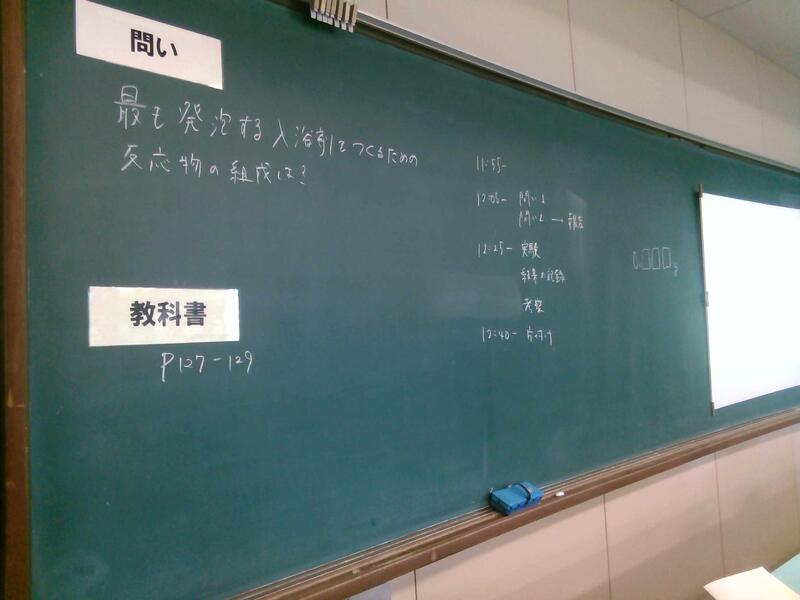 問い
最も発泡する入浴剤をつくるための
反応物の組成は?
教科書
P127-129
11:55-
12:05- 問い1
問い2 → 報告
12:25- 実験
結果の記録
考察
12:40- 片付け